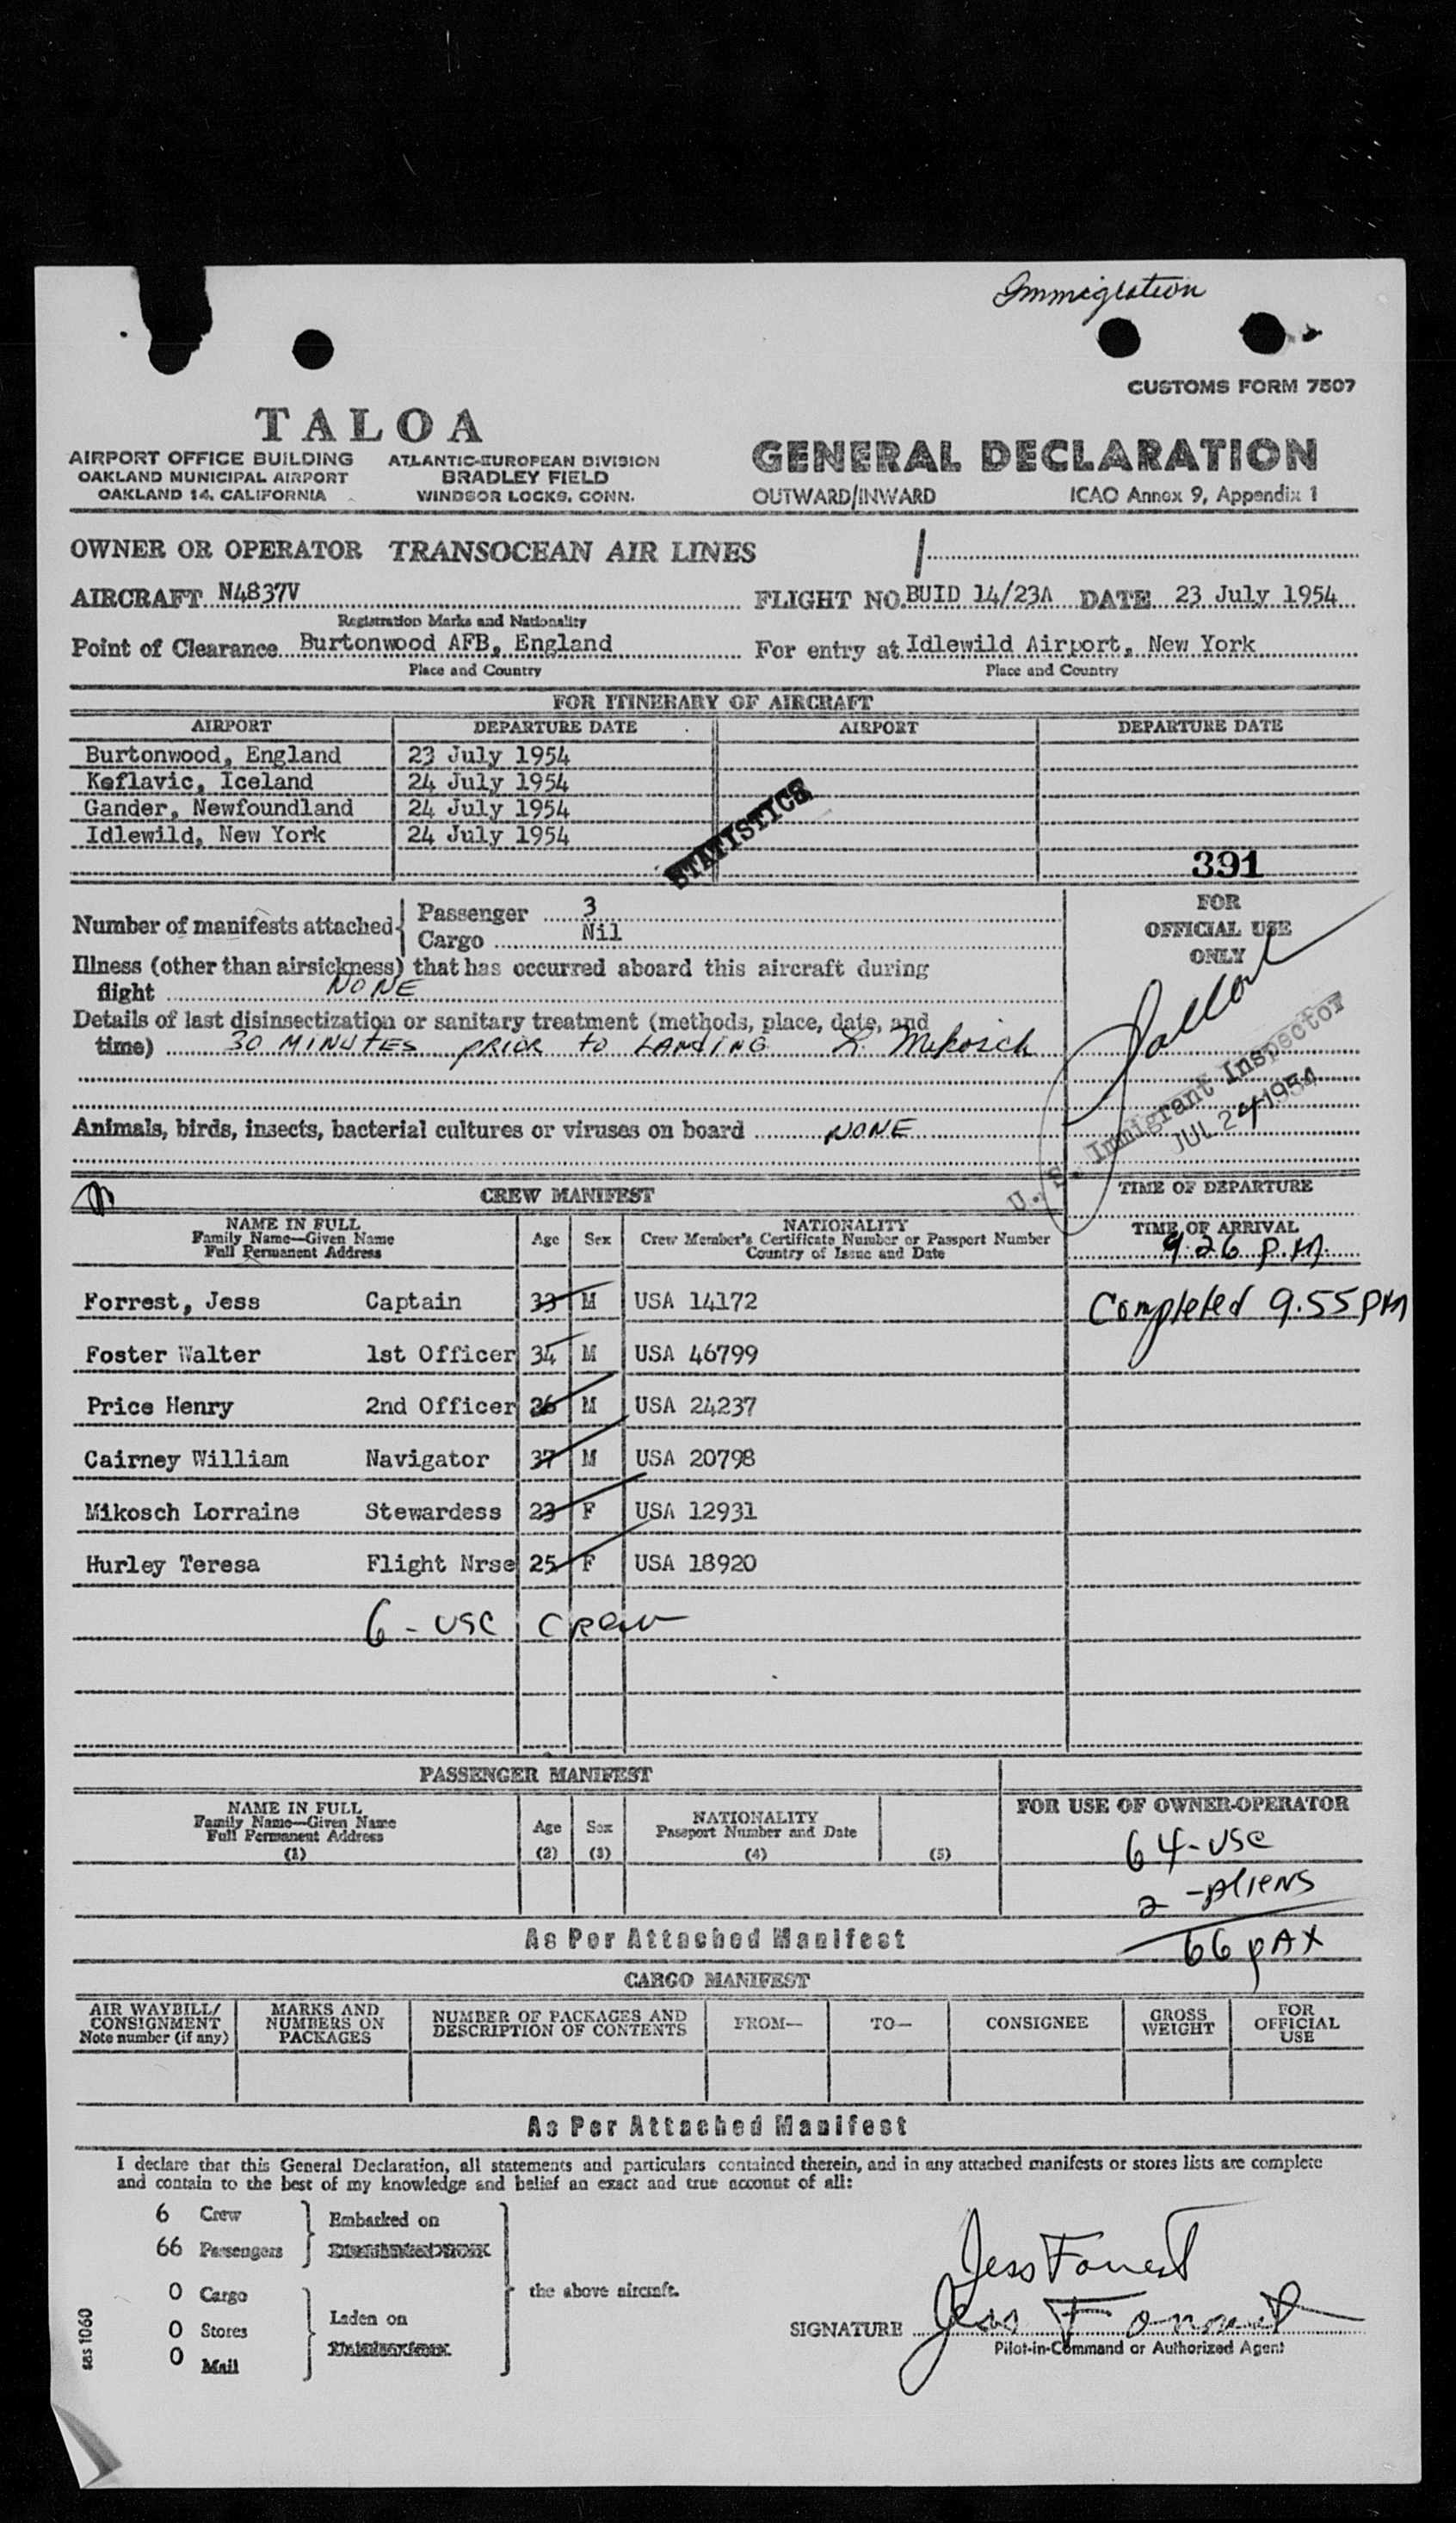 Immigration
CUSTOMS FORM 7507
TALOA
AIRPORT OFFICE BUILDING
OAKLAND MUNICIPAL AIRPORT
OAKLAND 14, CALIFORNIA
ATLANTIC-EUROPEAN DIVISION
BRADLEY FIELD
WINDSOR LOCKS, CONN.
GENERAL DECLARATION
OUTWARD/INWARD ICAO Annex 9, Appendix 1
OWNER OR OPERATOR TRANSOCEAN AIR LINES
AIRCRAFT N4837V FLIGHT NO. BUID 14/23A DATE 23 July 1954
Registration Marks and Nationality
Point of Clearance Burtonwood AFB, England For entry at Idlewild Airport, New York
Place and Country Place and Country
FOR ITINERARY OF AIRCRAFT
AIRPORT DEPARTURE DATE AIRPORT DEPARTURE DATE
Burtonwood, England 23 July 1954
Keflavic, Iceland 24 July 1954
Gander, Newfoundland 24 July 1954
Idlewild, New York 24 July 1954
STATISTICS
391
Number of manifests attached
Passenger 3
Cargo Nil
FOR
OFFICIAL USE
ONLY
Illness (other than airsickness) that has occurred aboard this aircraft during
flight NONE
Details of last disinsectization or sanitary treatment (methods, place, date, and
time) 30 MINUTES PRIOR TO LANDING L. Mikosch
Animals, birds, insects, bacterial cultures or viruses on board NONE
U. S. Immigrant Inspector
JUL 24 1954
CREW MANIFEST
TIME OF DEPARTURE
NAME IN FULL
Family Name—Given Name
Full Permanent Address
Age Sex
NATIONALITY
Crew Member's Certificate Number or Passport Number
Country of Issue and Date
TIME OF ARRIVAL
9.26 P.M.
Forrest, Jess Captain 33 M USA 14172
Completed 9.55 PM
Foster Walter 1st Officer 34 M USA 46799
Price Henry 2nd Officer 26 M USA 24237
Cairney William Navigator 37 M USA 20798
Mikosch Lorraine Stewardess 23 F USA 12931
Hurley Teresa Flight Nrse 25 F USA 18920
6 - USC CREW
PASSENGER MANIFEST
NAME IN FULL
Family Name—Given Name
Full Permanent Address
(1)
Age
(2)
Sex
(3)
NATIONALITY
Passport Number and Date
(4)
(5)
FOR USE OF OWNER-OPERATOR
64-USC
2 -Aliens
66 PAX
As Per Attached Manifest
CARGO MANIFEST
AIR WAYBILL/
CONSIGNMENT
Note number (if any)
MARKS AND
NUMBERS ON
PACKAGES
NUMBER OF PACKAGES AND
DESCRIPTION OF CONTENTS
FROM—
TO—
CONSIGNEE
GROSS
WEIGHT
FOR
OFFICIAL
USE
As Per Attached Manifest
I declare that this General Declaration, all statements and particulars contained therein, and in any attached manifests or stores lists are complete
and contain to the best of my knowledge and belief an exact and true account of all:
6 Crew
66 Passengers
Embarked on
0 Cargo
0 Stores
0 Mail
Laden on
the above aircraft.
Jess Forrest
SIGNATURE Jess Forrest
Pilot-in-Command or Authorized Agent